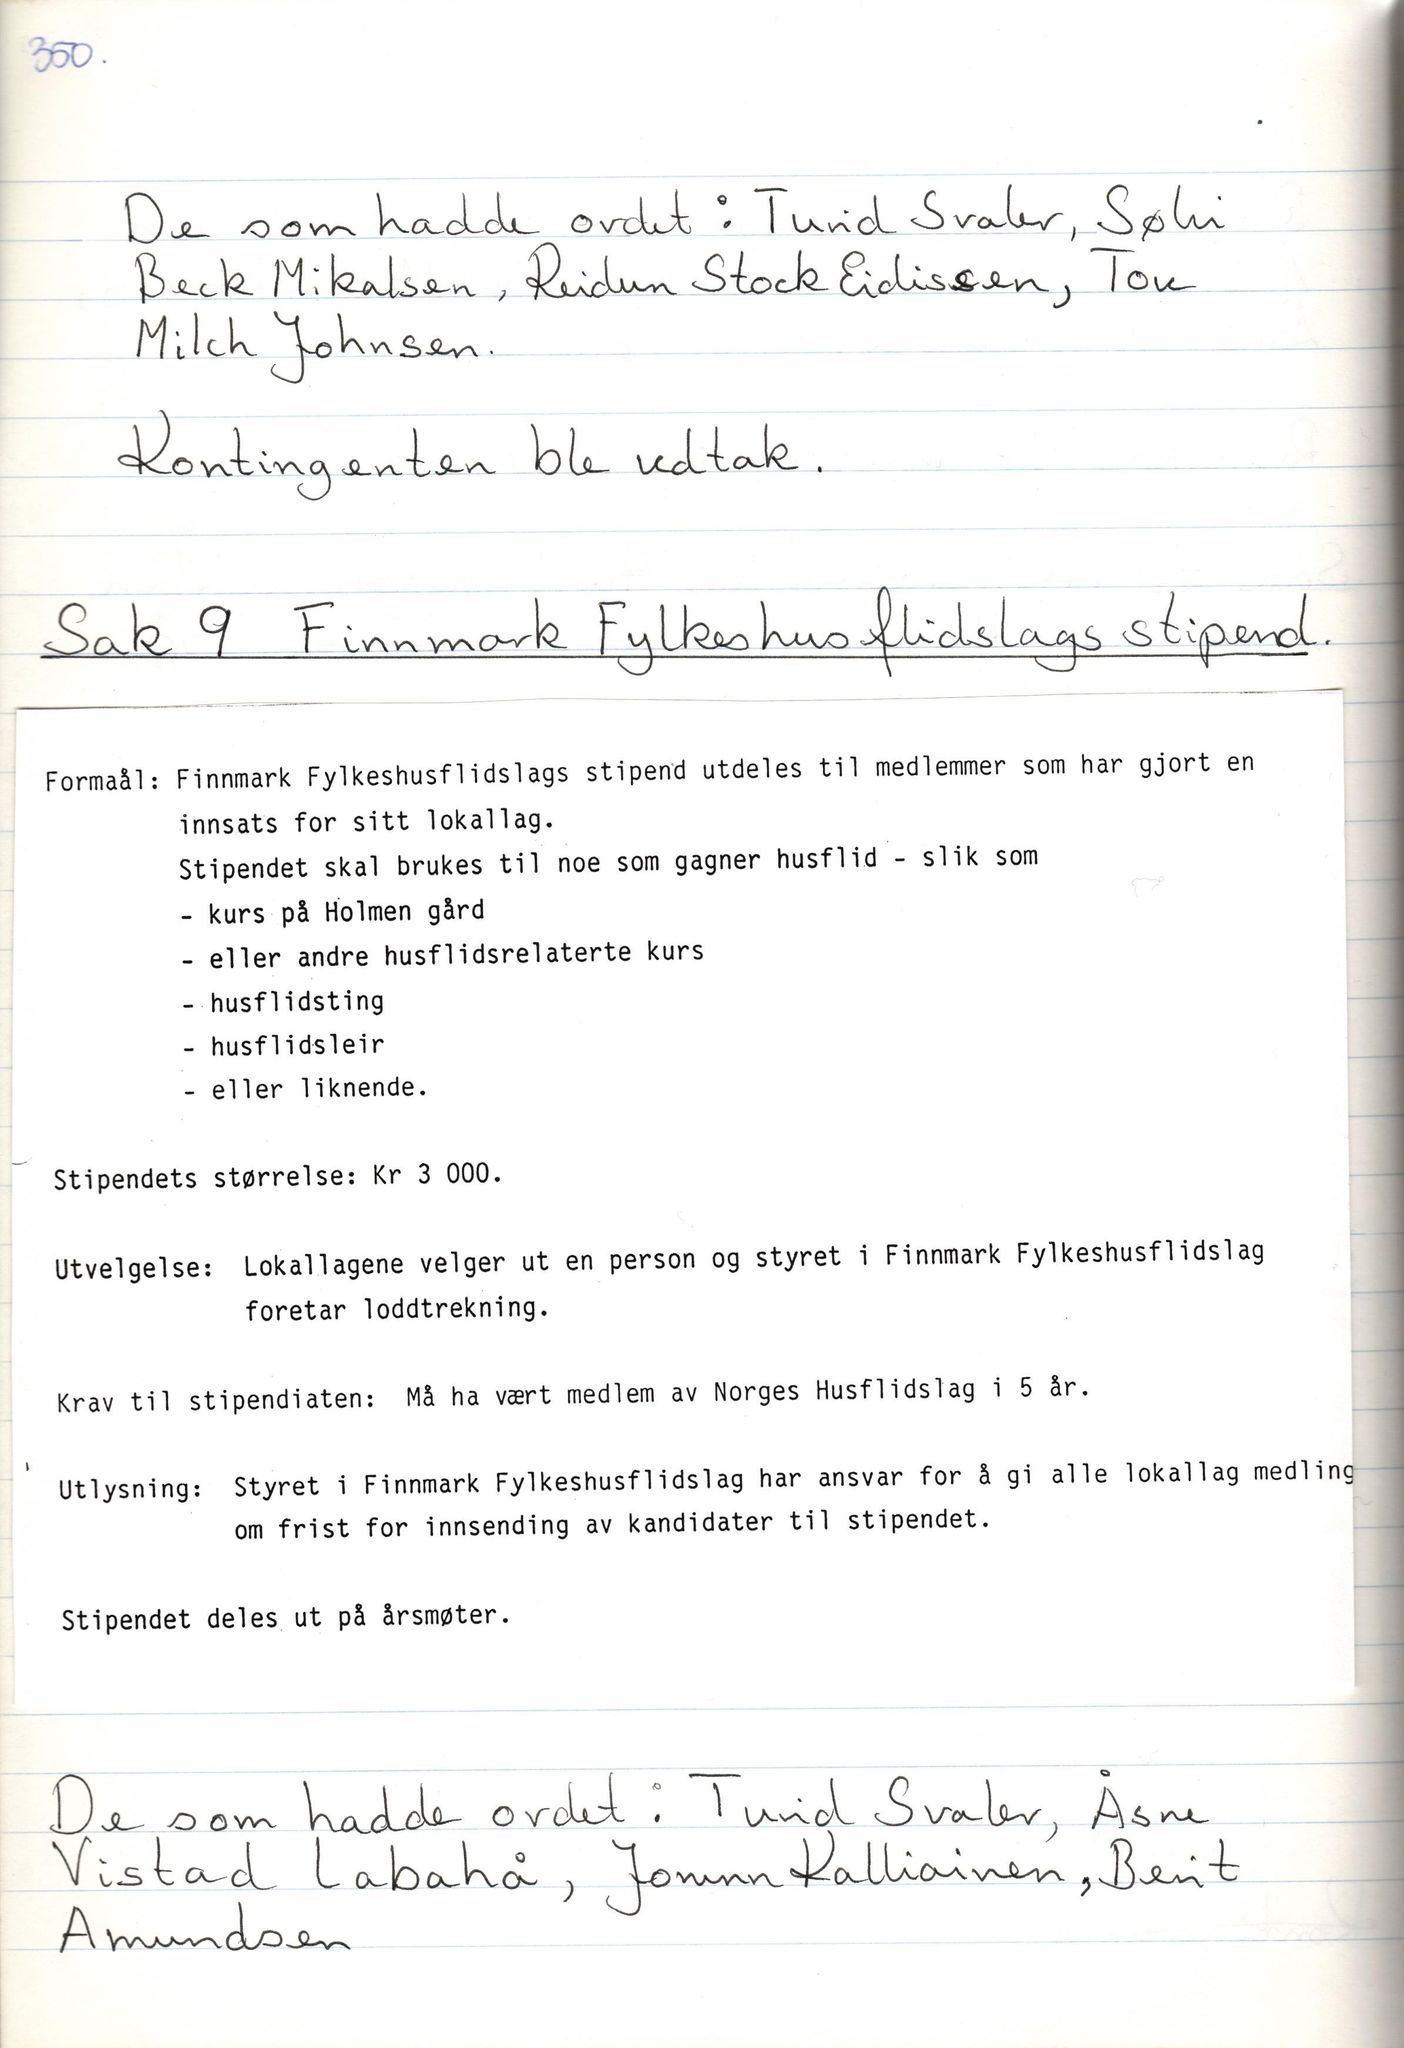 350.
De som hadde ordet: Turid Svaler, Sølvi
Beck Mikalsen, Reidun Stock Eidissen, Tove
Milch Johnsen.
Kontingenten ble vedtak.
Sak 9 Finnmark Fylkeshusflidslags stipend.
Formaål: Finnmark Fylkeshusflidslags stipend utdeles til medlemmer som har gjort en
innsats for sitt lokallag.
Stipendet skal brukes til noe som gagner husflid - slik som
- kurs på Holmen gård
- eller andre husflidsrelaterte kurs
- husflidsting
- husflidsleir
- eller liknende.
Stipendets størrelse: Kr 3 000.
Utvelgelse: Lokallagene velger ut en person og styret i Finnmark Fylkeshusflidslag
foretar loddtrekning.
Krav til stipendiaten: Må ha vært medlem av Norges Husflidslag i 5 år.
Utlysning: Styret i Finnmark Fylkeshusflidslag har ansvar for å gi alle lokallag medling
om frist for innsending av kandidater til stipendet.
Stipendet deles ut på årsmøter.
De som hadde ordet: Turid Svaler, Åsne
Vistad Labahå, Jorunn Kalliainen, Berit
Amundsen